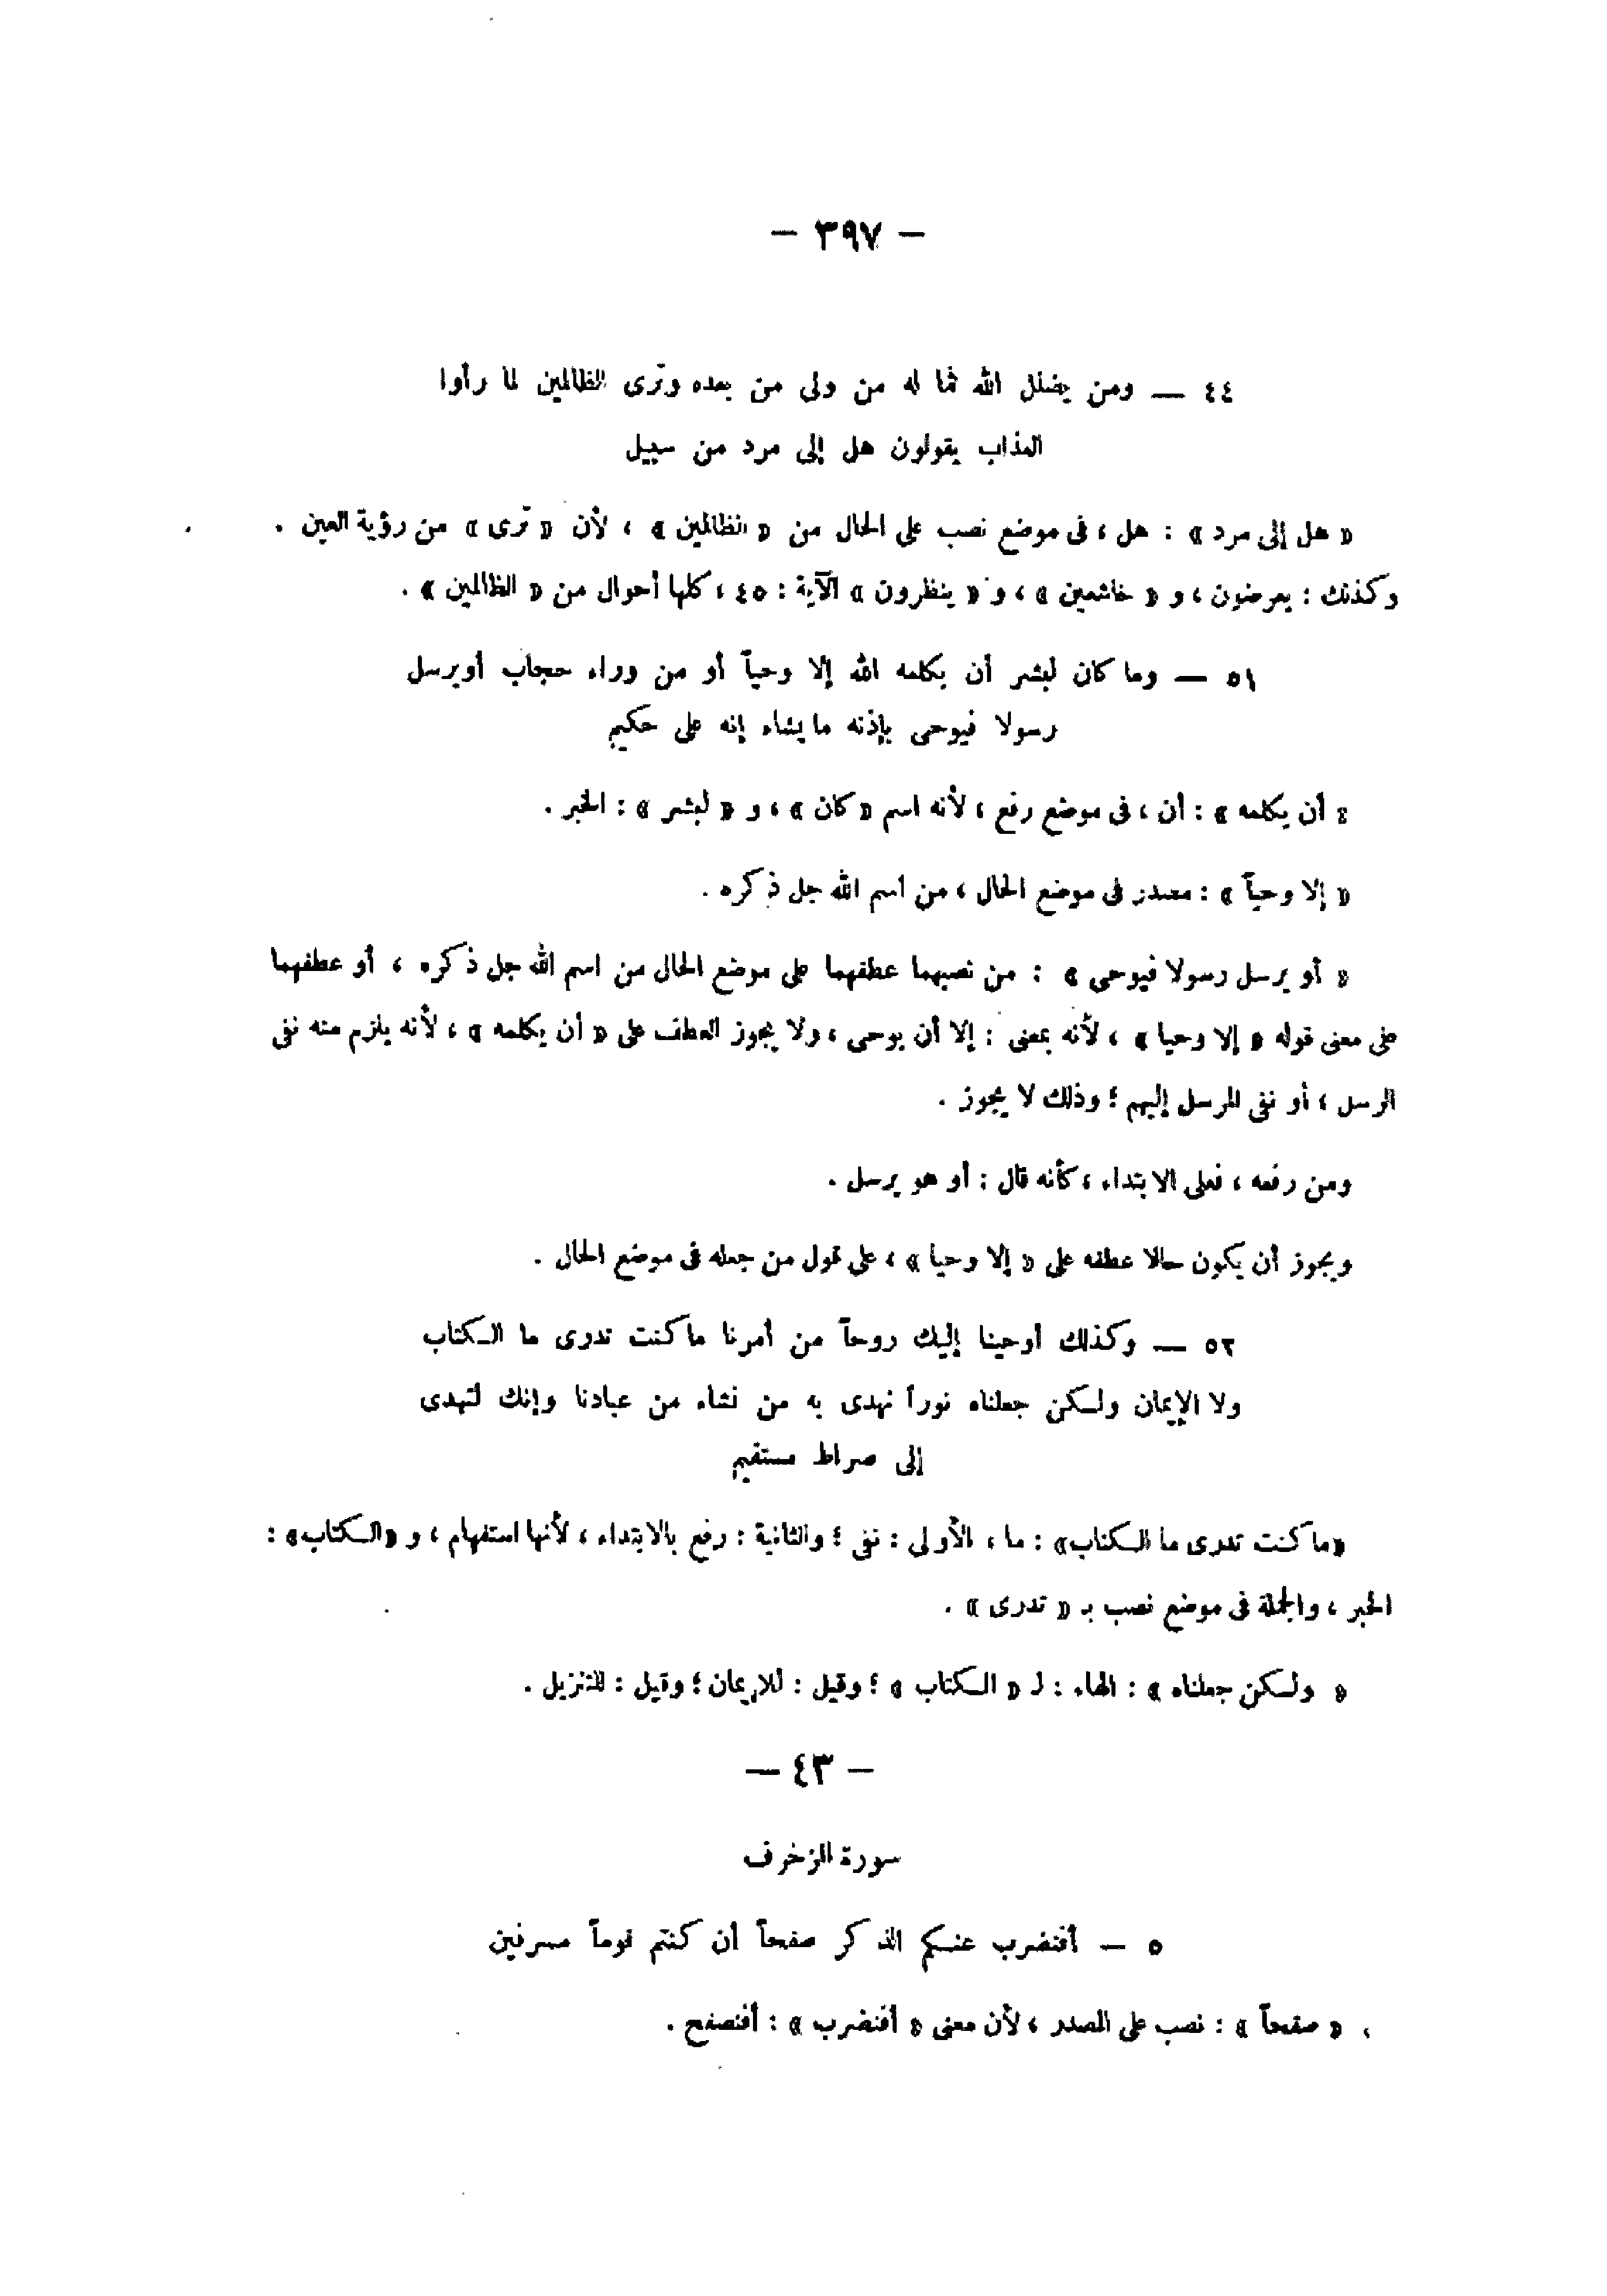 — ٣٩٧ —
٤٤ — ومن يضلل الله فما له من ولى من بعده وترى الظالمين لما رأوا
العذاب يقولون هل إلى مرد من سبيل
« هل إلى مرد » : هل ، فى موضع نصب على الحال من « الظالمين » ، لأن « ترى » من رؤية العين .
وكذلك : يعرضون ، و « خاشعين » ، و « ينظرون » الآية : ٤٥ ، كلها أحوال من « الظالمين » .
٥١ — وما كان لبشر أن يكلمه الله إلا وحياً أو من وراء حجاب أو يرسل
رسولا فيوحى بإذنه ما يشاء إنه على حكيم
« أن يكلمه » : أن ، فى موضع رفع ، لأنه اسم « كان » ، و « لبشر » : الخبر .
« إلا وحياً » : مصدر فى موضع الحال ، من اسم الله جل ذكره .
« أو يرسل رسولا فيوحى » : من نصبهما عطفهما على موضع الحال من اسم الله جل ذكره ، أو عطفهما
على معنى قوله « إلا وحيا » ، لأنه بمعنى : إلا أن يوحى ، ولا يجوز العطف على « أن يكلمه » ، لأنه يلزم منه نفى
الرسل ، أو نفى المرسل إليهم ؛ وذلك لا يجوز .
ومن رفعه ، فعلى الابتداء ، كأنه قال : أو هو يرسل .
ويجوز أن يكون حالا عطفه على « إلا وحيا » ، على قول من جعله فى موضع الحال .
٥٢ — وكذلك أوحينا إليك روحاً من أمرنا ما كنت تدرى ما الـكتاب
ولا الإيمان ولـكن جعلناه نوراً نهدى به من نشاء من عبادنا وإنك لتهدى
إلى صراط مستقيم
« ما كنت تدرى ما الـكتاب» : ما ، الأولى : نفى ؛ والثانية : رفع بالابتداء ، لأنها استفهام ، و «الـكتاب» :
الخبر ، والجملة فى موضع نصب بـ « تدرى » .
« ولـكن جعلناه » : الهاء : لـ « الـكتاب » ؛ وقيل : للإيمان ؛ وقيل : للتنزيل .
— ٤٣ —
سورة الزخرف
٥ — أفنضرب عنـكم الذكر صفحاً أن كنتم قوماً مسرفين
« صفحاً » : نصب على المصدر ، لأن معنى « أفنضرب » : أفنصفح .